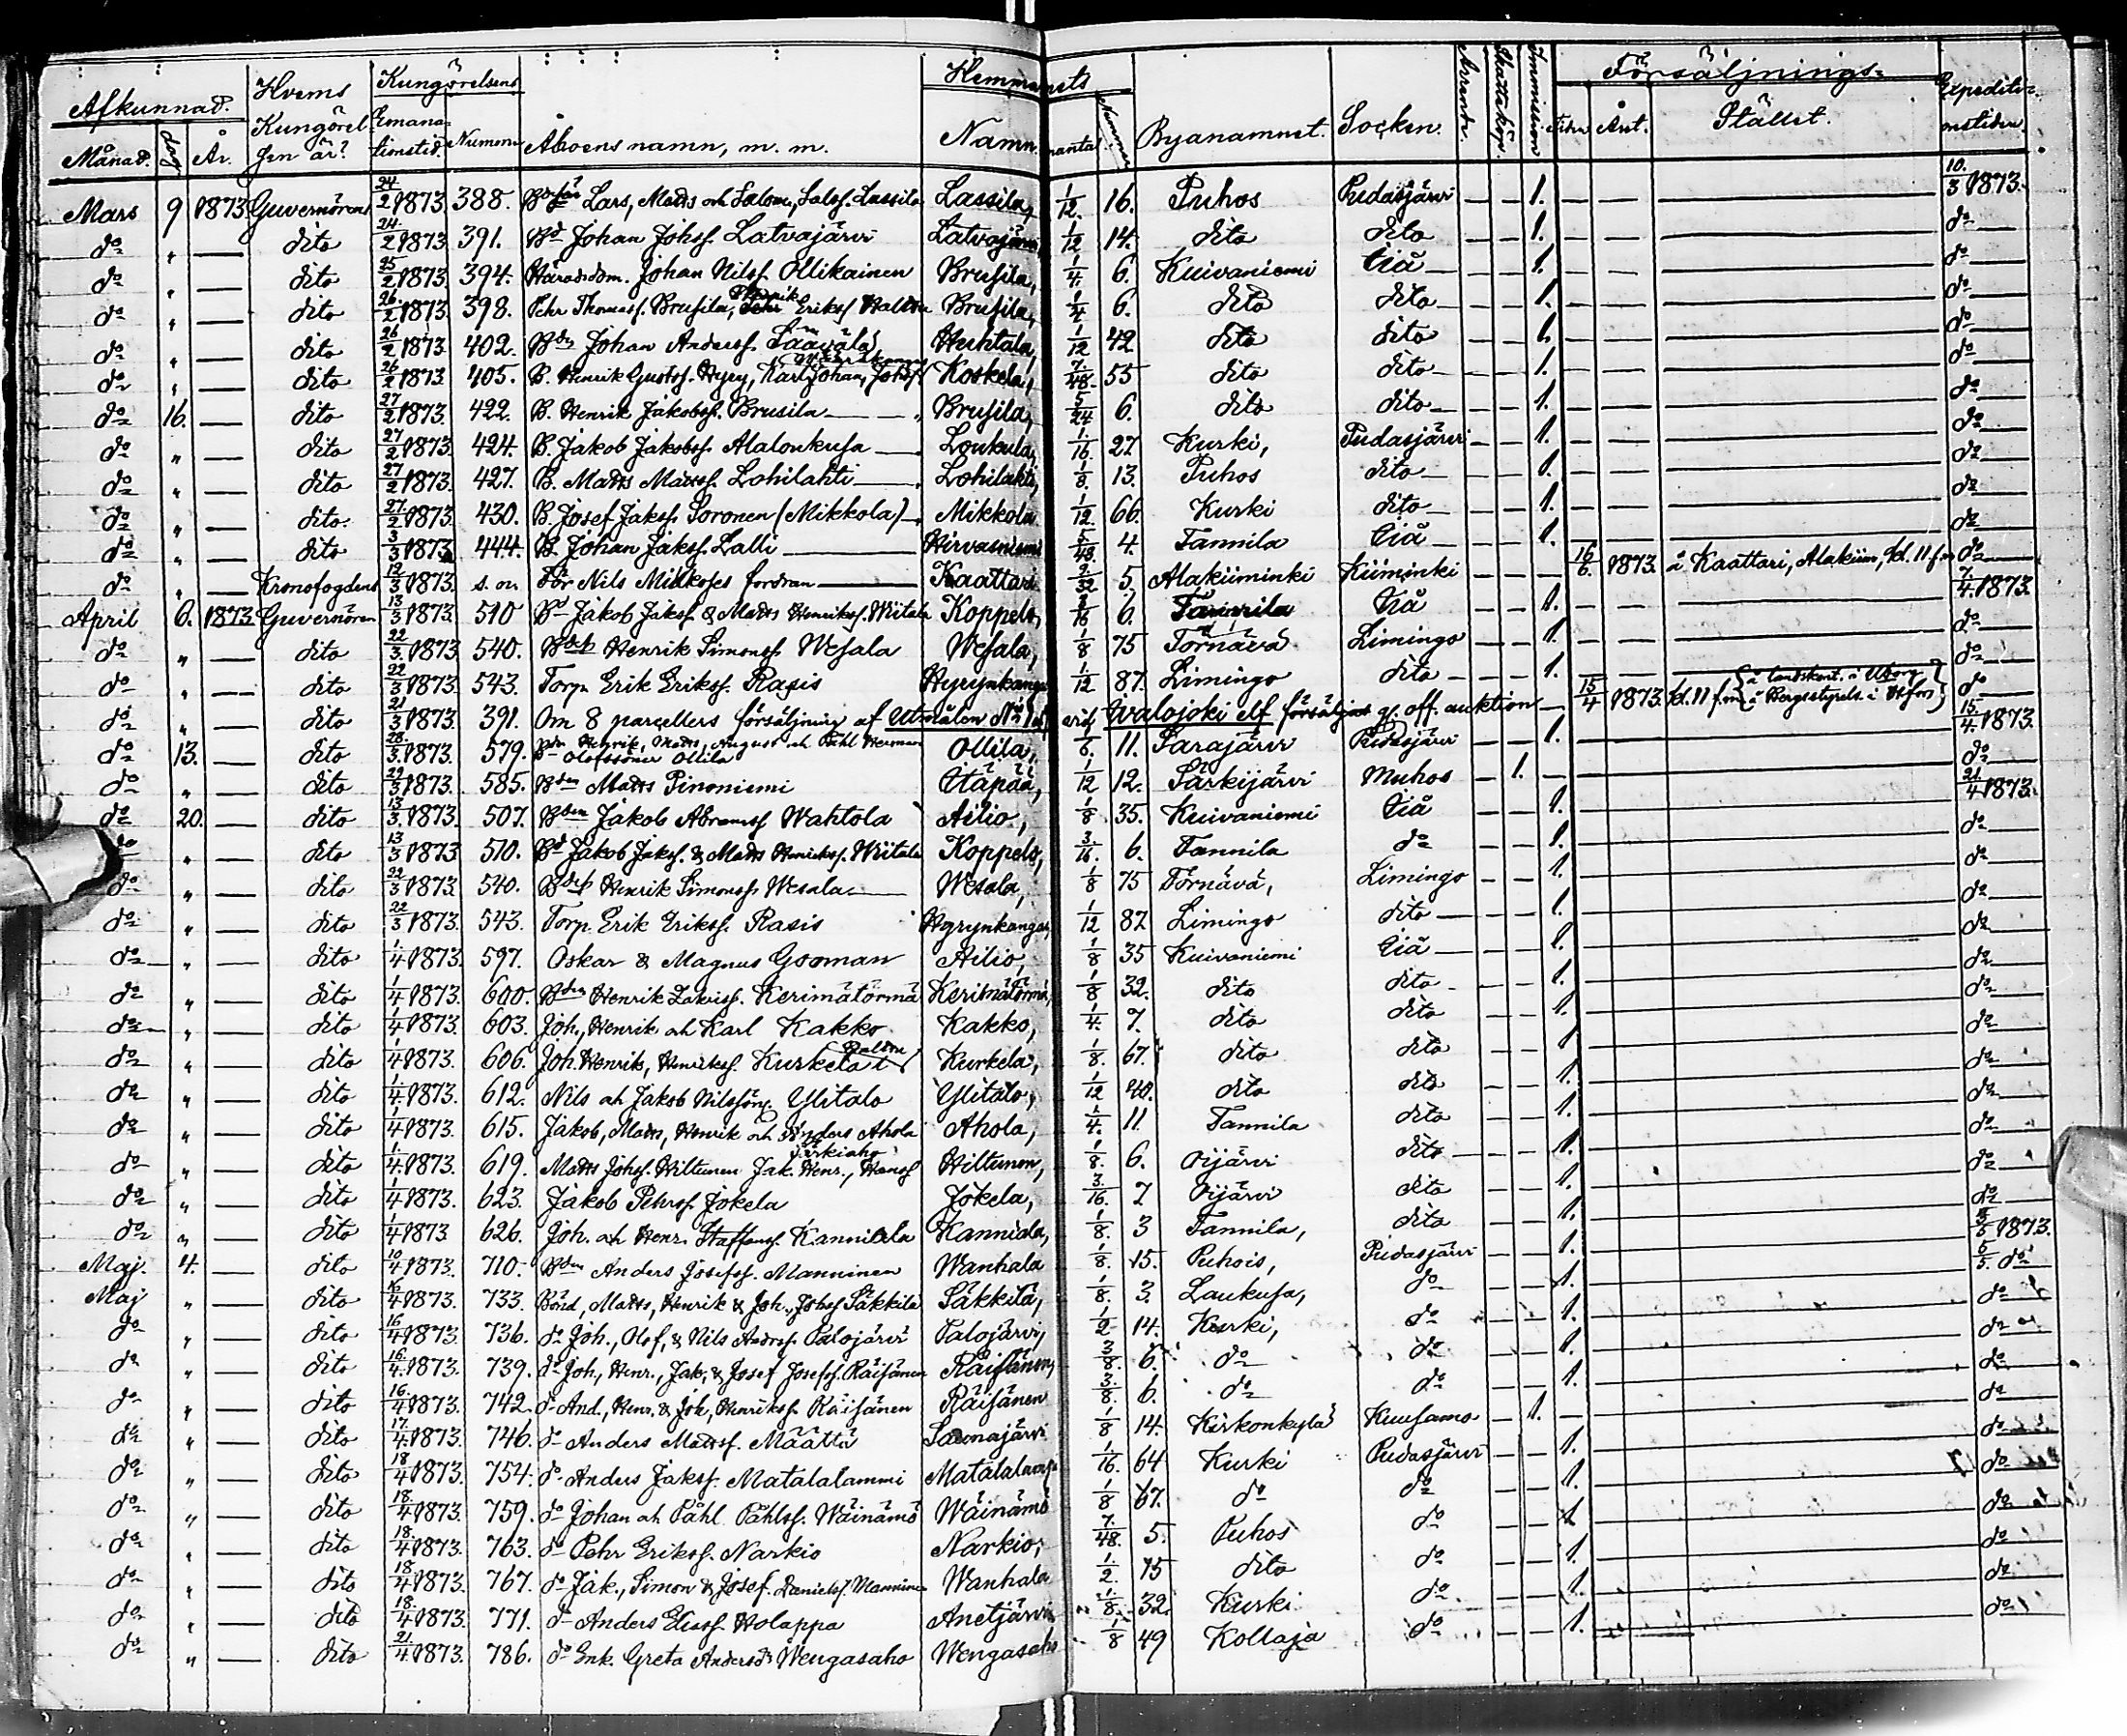 Afkunnad. Hvems Kungörelsens Hemmanets Försäljnings- Expediti-
Månad. dag År. Kungörel- sen är? Emana- tionstid. Numm Åboens namn, m. m. Namn. manta Nummer Byanamnet. Socken. Arrende. Skatteköp. Immission Tiden Året. Stället. onstiden.
Mars 9 1873 Guvernörens 24/2 1873 388. Lars, Matts och Salom. Lassila Lassila, 1/12. 16. Puhos Pudasjärvi — — 1. — — — 10./3 1873.
do " — dito 24/2 1873 391. Bd Johan Johsf. Latvajärvi Latvajärvi, 1/12 14. dito dito — — 1. — — — do
do " — dito 25/2 1873 394. Häradsdom. Johan Nilsf. Ollikainen Brusila, 1/4. 6. Kuivaniemi Iiå — — 1. — — — do
do " — dito 26./2 1873 398. Pehr Thomasf. Brusila, Henrik Eriksf. Haltta Brusila, 1/4 6. dito dito — — 1. — — — do
do " — dito 26/2 1873 402. Bdn Johan Andersf. Säävälä Huhtala, 1/12 42 dito dito — — 1. — — — do
do " — dito 26/2 1873 405. B. Henrik Gustsf. Hyry, Karl Johan, Johsf. Koskela, 7/48. 55 dito dito — — 1. — — — do
do 16. — dito 27/2 1873. 422. B. Henrik Jakobsf. Brusila — Brusila, 5/24 6. dito dito — — 1. — — — do
do " — dito 27/2 1873. 424. B. Jakob Jakobsf. Alaloukusa — Loukula, 1/16. 27. Kurki, Pudasjärvi — — 1. — — — do
do " — dito 27/2 1873. 427. B. Matts Matssf. Lohilahti — Lohilahti, 1/8. 13. Puhos dito — — 1. — — — do
do " — dito. 27./2 1873. 430. B. Josef Jaksf. Soronen (Mikkola) — Mikkola 1/12. 66. Kurki dito — — 1. — — — do
do " — dito 3/3 1873. 444. B. Johan Jaksf. Lalli — Hirvasniemi 5/48. 4. Tannila Iiå — — 1. — — — do
do " — Kronofogdens 12/3 1873. s. on För Nils fordran — Kaattari 9/32 5. Alakiiminki Kiiminki — — — 16/6. 1873. å Kaattari, Alakiim, kl. 11 f.m. do
April 6. 1873. Guvernören 13/3 1873. 510 Bd Jakob Jaksf. & Matts Henriksf. Wiitala Koppelo, 3/16 6. Tannila Iiå — — 1. — — — 7/4. 1873.
do " — dito 22/3. 1873 540. Henrik Simonsf. Wesala Wesala, 1/8 75 Törnävä Limingo — — 1. — — — do
do " — dito 22/3 1873. 543. Torp. Erik Eriksf. Rasis Hyrynkangas 1/12 87. Limingo dito — — 1. — — — do
do " — dito 21/3 1873. 391. Om 8 parcellers försäljning af Utmålen No 1 af vid Walojoki elf försäljas gr. off. auktion — 15/4 1873. kl. 11 f.m. { å landskont. i Ulborg å Bergsstyrels. i Hfors } do
do 13. — dito 28./3. 1873. 579. Bdn Henrik, Matts, August och Påhl Herman Olofssöner Ollila Ollila, 1/6. 11. Sarajärvi Pudasjärvi — — 1. — — — 15./4. 1873.
do " — dito 29/3 1873. 585. Bden Matts Pinoniemi Utäpää, 1/12 12. Särkijärvi Muhos — 1. — — — — do
do 20. — dito 13/3. 1873. 507. Bden Jakob Abramsf. Wahtola Ailio, 1/8 35. Kuivaniemi Iiå — — 1. — — — 21/4 1873.
do " — dito 13/3 1873 510. Bd Jakob Jaksf. & Matts Henriksf. Wiitala Koppelo, 3/16. 6. Tannila do — — 1. — — — do
do " — dito 22/3 1873 540. Henrik Simonsf. Wesala — Wesala, 1/8 75 Törnävä, Limingo — — 1. — — — do
do " — dito 22/3 1873. 543. Torp. Erik Eriksf. Rasis Hyrynkangas, 1/12 87. Limingo dito — — 1. — — — do
do " — dito 1/4 1873. 597. Oskar & Magnus Gooman Ailio, 1/8 35 Kuivaniemi Iiå — — 1. — — — do
do " — dito 1/4 1873. 600. Bden Henrik Zakrisf. Kerimätörmä Kerimätörmä, 1/8 32. dito dito — — 1. — — — do
do " — dito 1/4 1873. 603. Joh., Henrik och Karl Kakko Kakko, 1/4. 7. dito dito — — 1. — — — do
do " — dito 1/4 1873. 606. Joh. Henrik, Henriksf. Kurkela Kurkela, 1/8. 67. dito dito — — 1. — — — do
do " — dito 1./4. 1873. 612. Nils och Jakob Nilssöner Ylitalo Ylitalo, 1/12 40. dito dito — — 1. — — — do
do " — dito 1/4 1873. 615. Jakob, Matts, Henrik och Anders Ahola Ahola, 1/4. 11 Tannila dito — — 1. — — — do
do " — dito 1/4. 1873. 619. Matts Johsf. Hiltunen Jak. Henr., Hansf Särkiaho Hiltunen, 1/8. 6. Oijärvi dito — — 1. — — — do
do " — dito 1/4 1873. 623. Jakob Pehrsf. Jokela Jokela, 3./16. 7 Oijärvi dito — — 1. — — — do
do " — dito 1/4 1873 626. Joh. och Henr. Staffansf. Kanniala Kanniala, 1/8. 3 Tannila, dito — — 1. — — — 5/5 1873.
Maj. 4. — dito 10/4 1873. 710. Bden Anders Josefsf. Manninen Wanhala 1/8. 15. Puhois, Pudasjärvi — — 1. — — — 5/5. do
Maj " — dito 16/4 1873. 733. Bönd, Matts, Henrik & Joh., Johsf Säkkilä Säkkilä, 1/8. 3. Laukusa, do — — 1. — — — do
do " — dito 16/4 1873. 736. do Joh., Olof, & Nils Andrsf. Palojärvi Palojärvi, 1/2 14. Kurki, do — — 1. — — — do
do " — dito 16./4. 1873. 739. do Joh, Henr., Jak. & Josef Josefsf. Räisänen Räisänen, 3/8. 6. do do — — 1. — — — do
do " — dito 16./4 1873. 742. do And., Henr. & Joh, Henriksf. Räisänen Räisänen 3./8. 6. do do — — 1. — — — do
do " — dito 17./4. 1873. 746. do Anders Mattsf. Määttä Saunajärvi 1/8 14. Kirkonkylä Kuusamo — 1. — — — — do
do " — dito 18/4 1873. 754. do Anders Jaksf. Matalalammi Matalalammi 1/16. 64 Kurki Pudasjärvi — — 1. — — — do
do " — dito 18./4 1873. 759. do Johan och Påhl Påhlsf. Wäinämö Wäinämö 1/8 67. do do — — 1. — — — do
do " — dito 18./4 1873. 763. do Pehr Eriksf. Narkio Narkio, 7./48. 5. Puhos do — — 1 — — — do
do " — dito 18./4 1873. 767. do Jak., Simon & Josef. Danielsf. Manninen Wanhala 1/2. 15 dito do — — 1. — — — do
do " — dito 18./4 1873. 771. do Anders Eliasf. Holappa Anetjärvi 1/8. 32. Kurki do — — 1. — — — do
do " — dito 21./4. 1873. 786. do Enk. Greta Andersdr Wengasaho Wengasaho 1/8 49 Kollaja do — — 1. — — — do